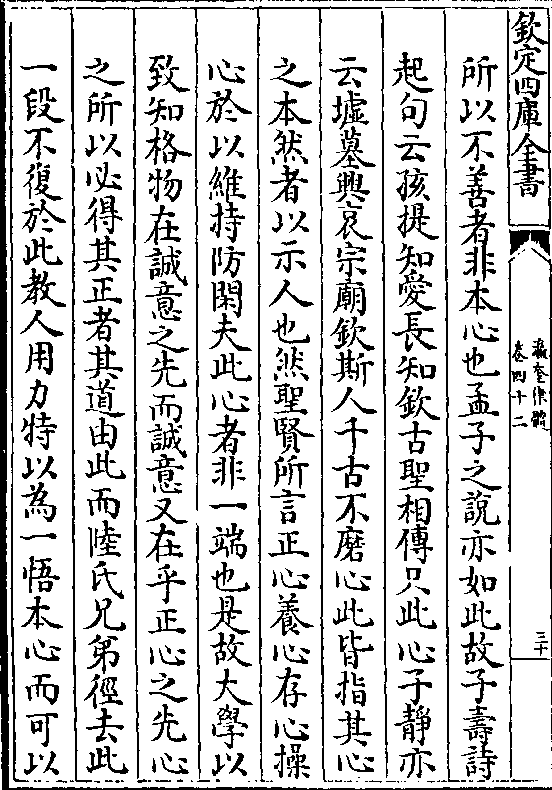 欽定四庫全書
瀛奎律髓
卷四十二
三十
所以不善者非本心也孟子之說亦如此故子壽詩
起句云孩提知愛長知欽古聖相傳只此心子靜亦
云墟墓興哀宗廟欽斯人千古不磨心此皆指其心
之本然者以示人也然聖賢所言正心養心存心操
心於以維持防閑夫此心者非一端也是故大學以
致知格物在誠意之先而誠意又在乎正心之先心
之所以必得其正者其道由此而陸氏兄弟徑去此
一段不復於此教人用力特以為一悟本心而可以